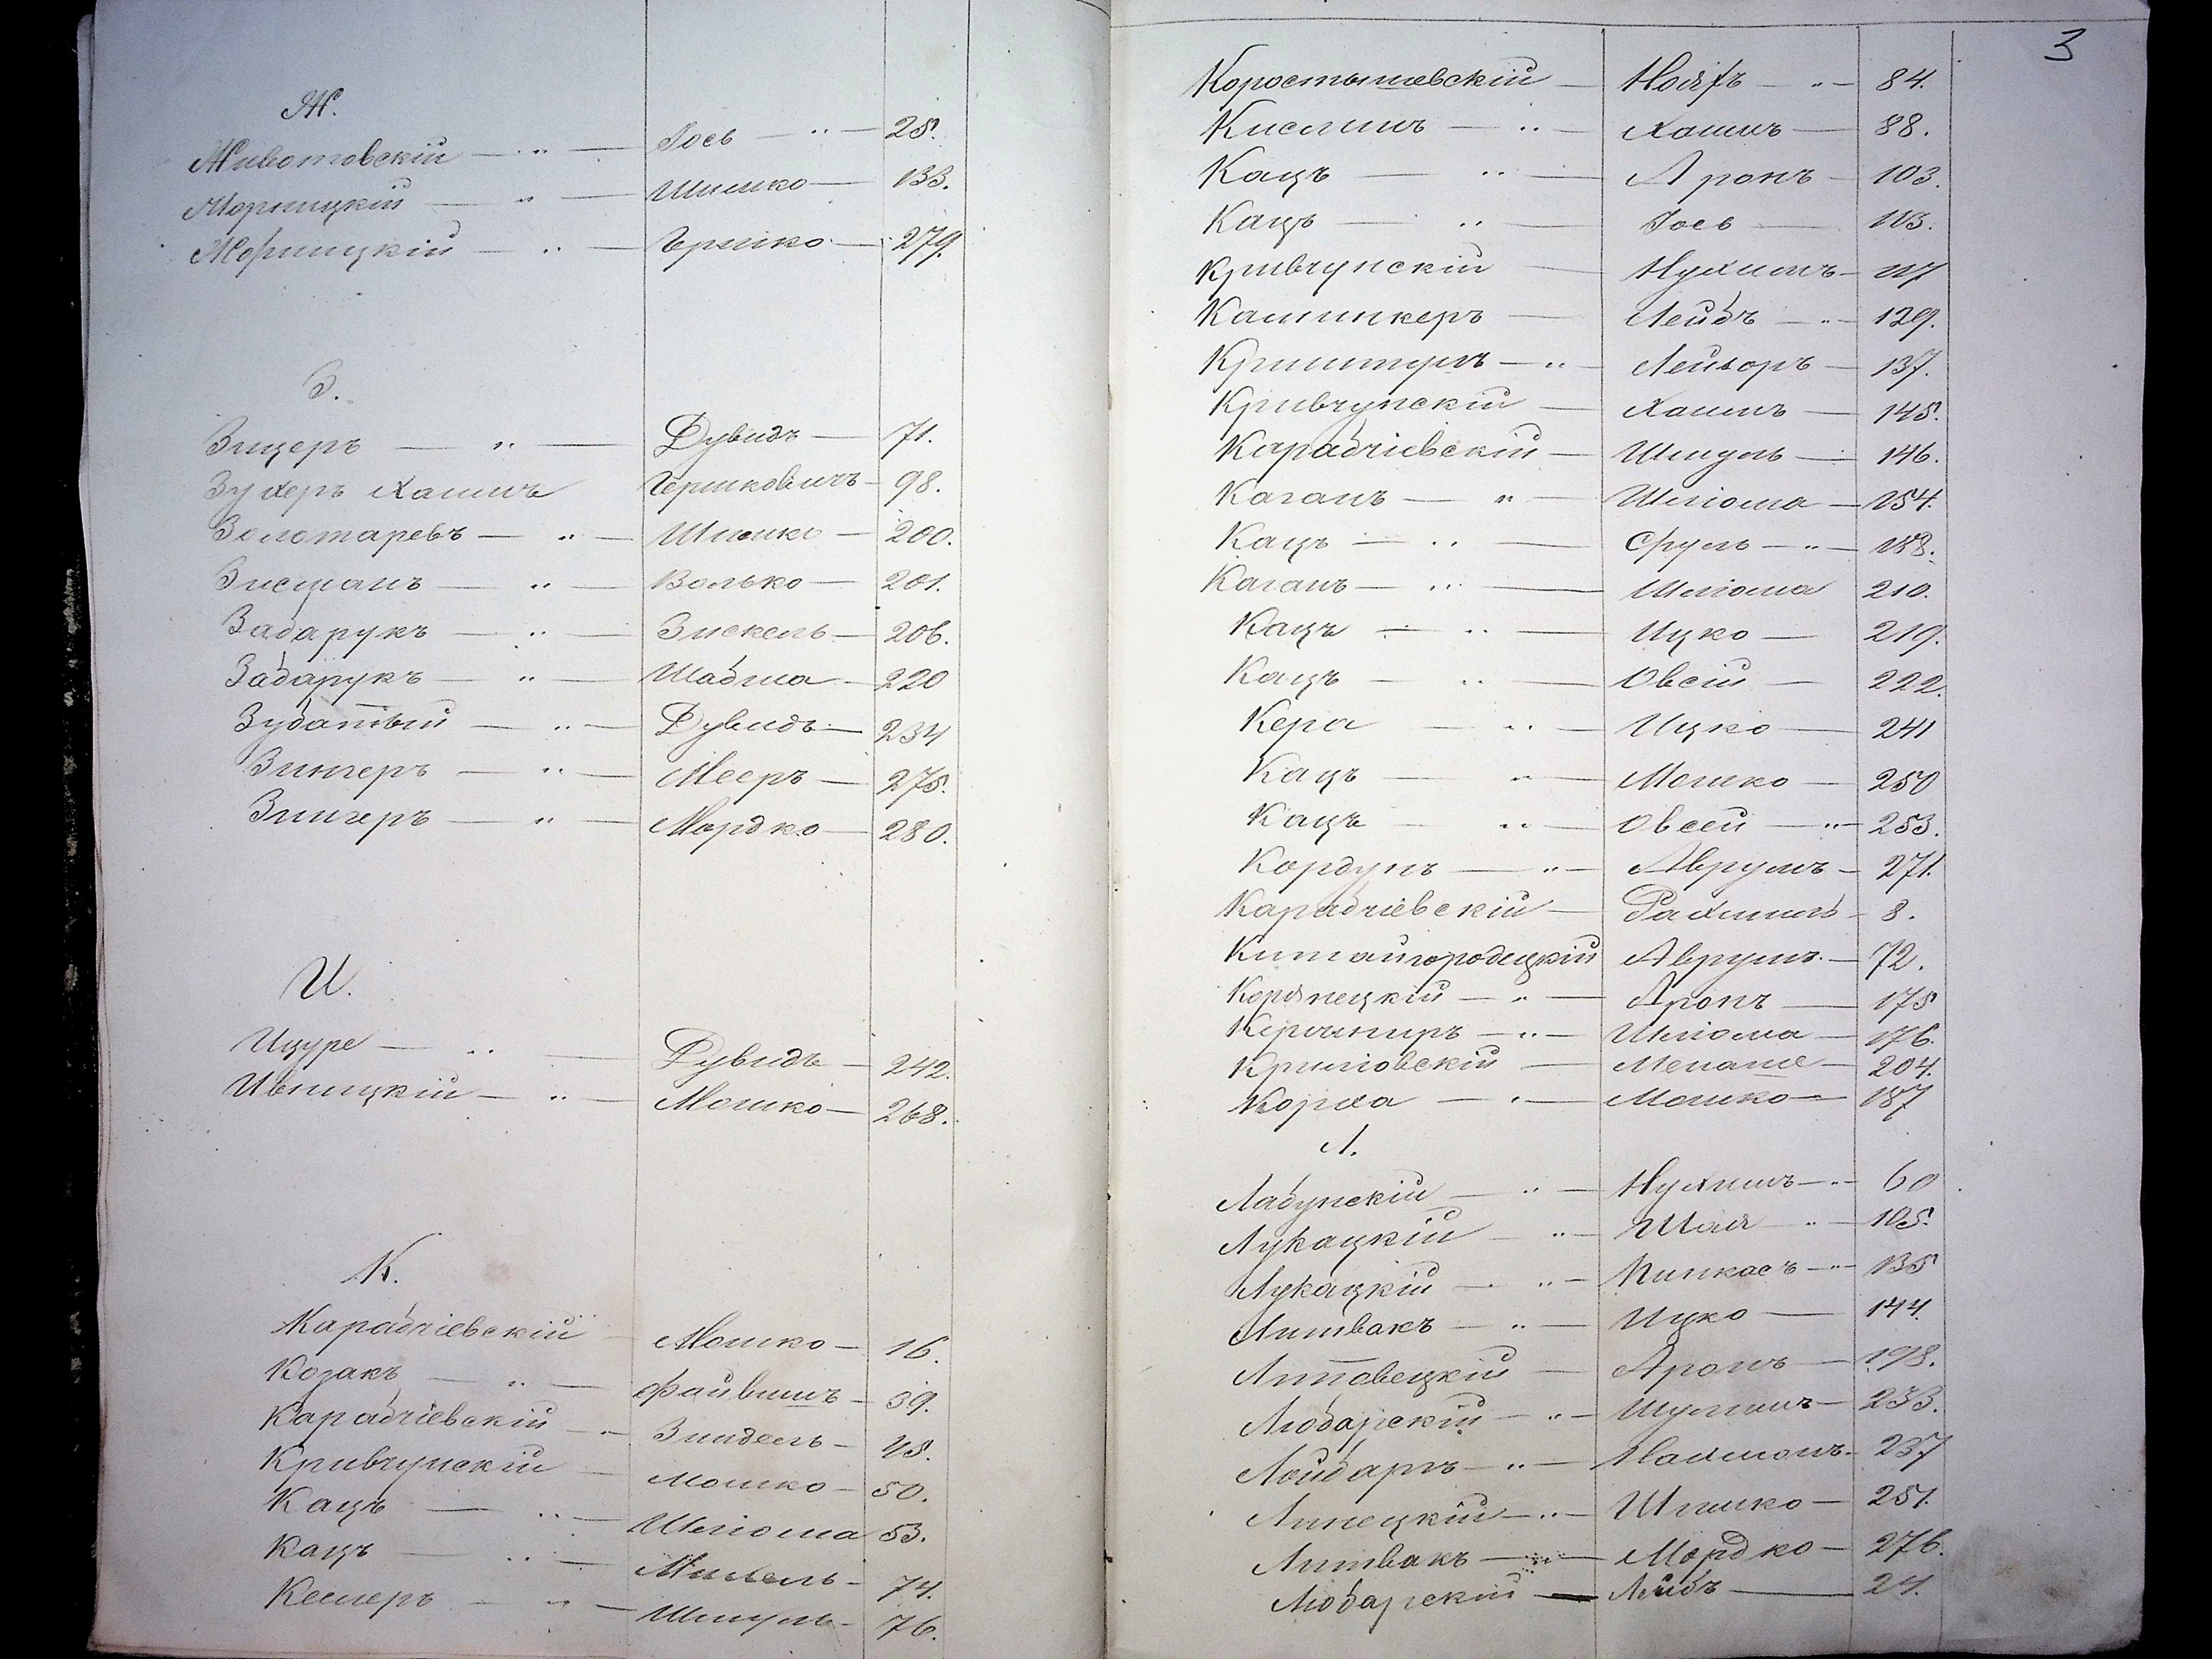 Ж.
Животовскій — " — Іось — " — 25.
Жорницкій — " — Шимко — 133.
Жорницкій — " — Гершко — 279.
З.
Зицеръ — " — Дувидъ — 71.
Зухеръ Хаимъ Гершковичъ — 98.
Золотаревъ — " — Шмилко — 200.
Зисманъ — " — Волько — 201.
Забарукъ — " — Зискель — 206.
Забарукъ — " — Шабма — 220
Зубатый — " — Дувидъ — 234
Зингеръ — " — Мееръ — 275.
Зингеръ — " — Мордко — 280.
И.
Ицуре — " — Дувидъ — 242.
Ивницкій — " — Мошко — 268.
К.
Карабчіевскій — Мошко — 16.
Козакъ — " — Файвишъ — 39.
Карабчіевскій — " — Зиндель — 45.
Кривчунскій — Мошко — 50.
Кацъ — " — Шліома 53.
Кацъ — " — Михель — 74.
Кеслеръ — " — Шмуль — 76.
3
Коростышевскій — — " — 84.
Кислинъ — " — Хаимъ — 88.
Кацъ — " — Аронъ — 103.
Кацъ — " — Іось — 113.
Кривчунскій — Нухимъ — 117
Калининкеръ — Лейбъ — " — 129.
Криштулъ — " — Лейзоръ — 137.
Кривчунскій — Хаимъ — 145.
Карабчіевскій — Шмуль — 146.
Каганъ — " — Шліома — 154.
Кацъ — " — Сруль — " — 158.
Каганъ — " — Шліома 210.
Кацъ — " — Ицко — 219.
Кацъ — " — Овсій — 222.
Кера — " — Ицко — 241
Кацъ — " — Мошко — 250
Кацъ — " — Овсей — " — 253.
Кордунъ — " — Аврумъ — 271.
Карабчіевскій — Рахмиль — 8.
Китайгородецкій Аврумъ. — 72.
Корянецкій — " — Аронъ — 175
— " — Шліома — 176.
Криловскій — Менаше — 204.
Корха — " — Мошко — 187
Л.
Лабунскій — " — Нухимъ — " — 60
Лукацкій — " — Шая — " — 105.
Лукацкій — " — Пинкасъ — " — 135
Литвакъ — " — Ицко — 144.
Литовецкій — Аронъ — 198.
Любарскій — " — Шулимъ — 233.
Лойбаръ — " — Нахманъ — 237
Липецкій — " — Шмилко — 251.
Литвакъ — " — Мордко — 276.
Любарскій — Лейбъ — 24.